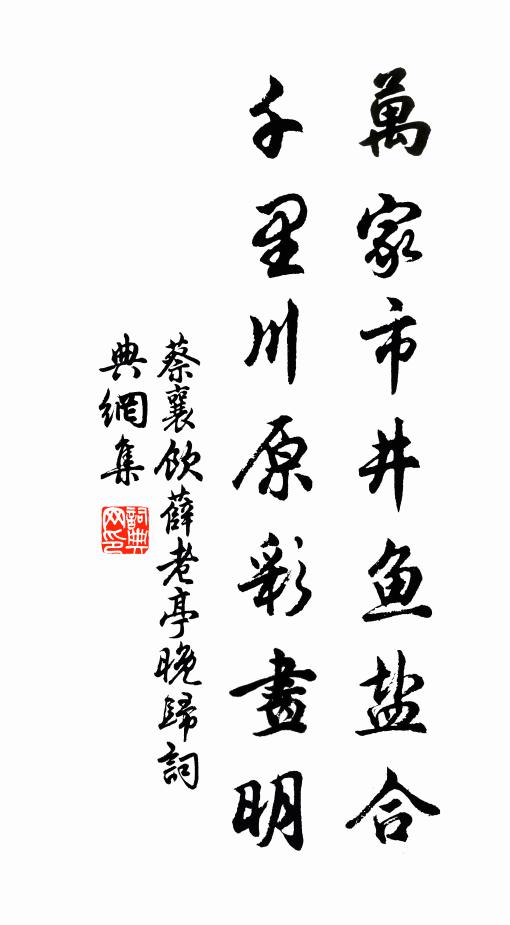 萬家市井魚盐合
千里川原彩畫明
蔡襄飲薛老亭晚歸詞
典網集
詞典網印